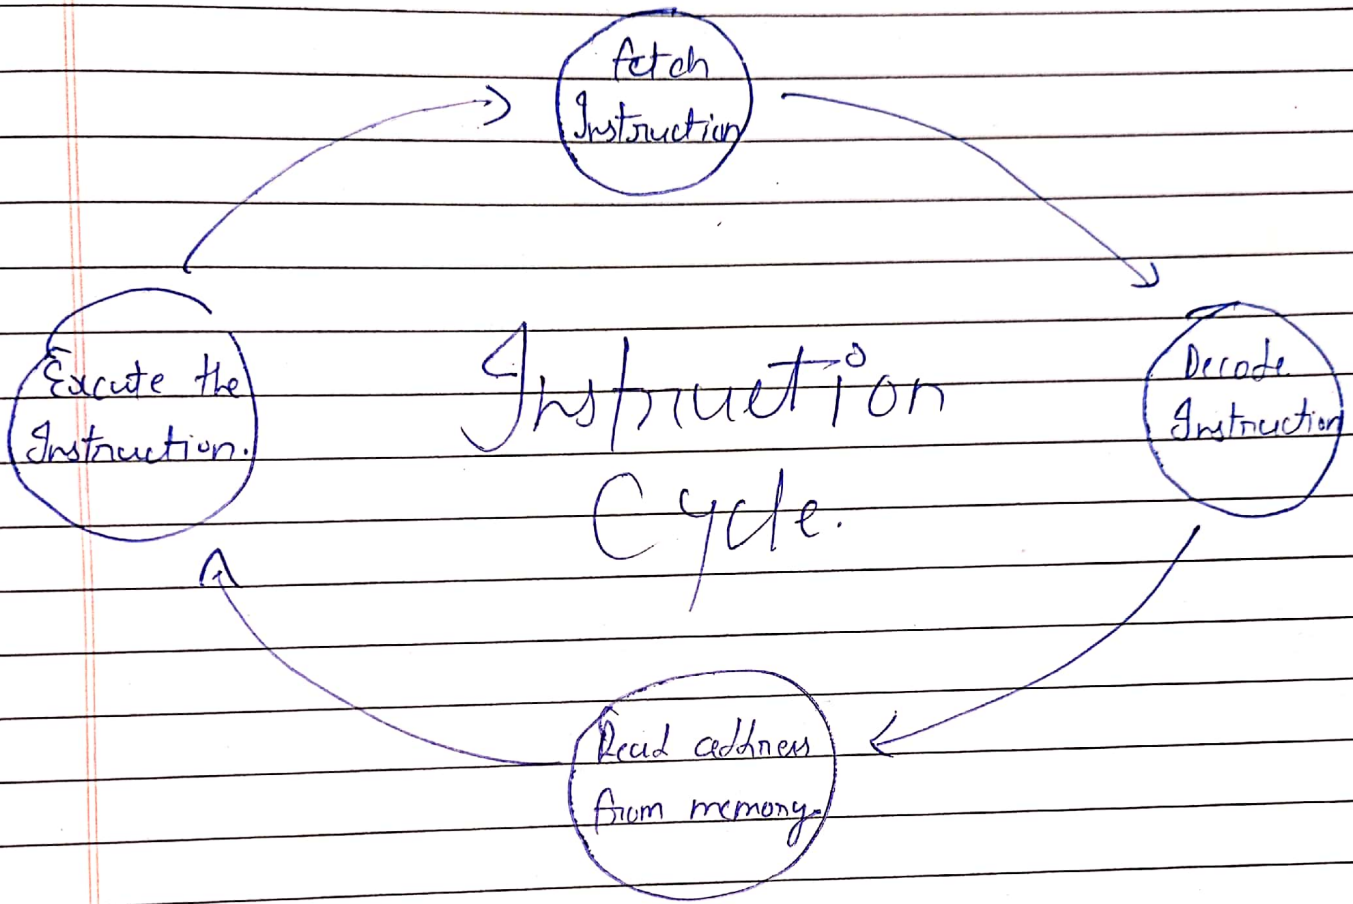 fetch
Instruction
Excute the
Instruction.
Instruction
Cycle.
Decode
Instruction
Read address
from memory.